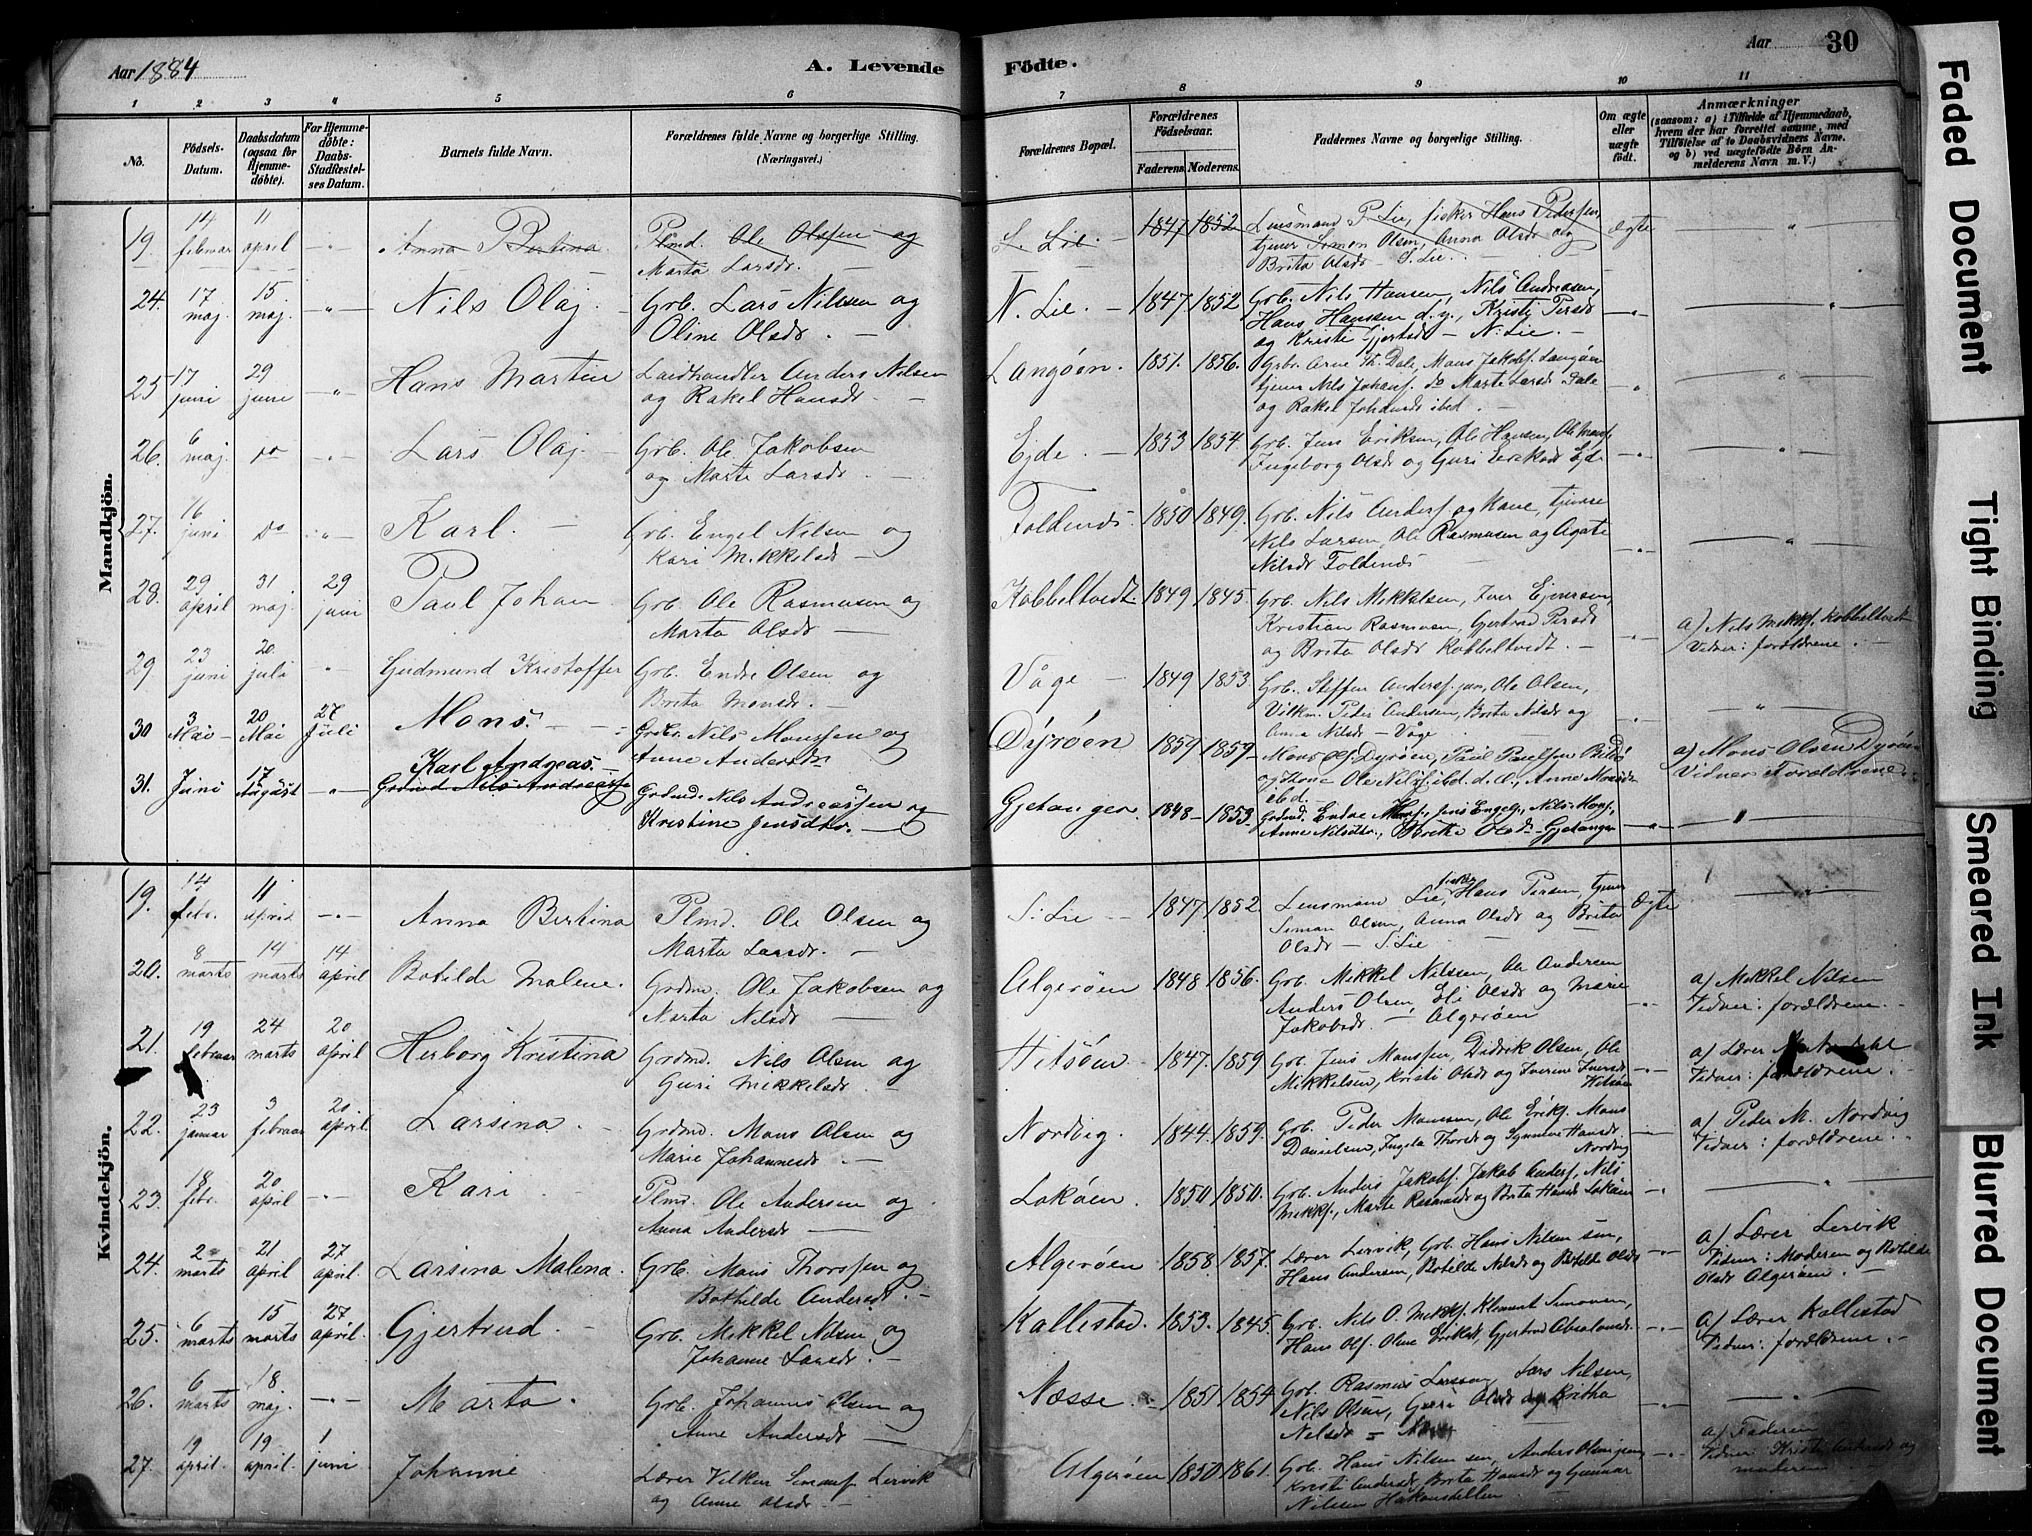 Aar 1884
A. Levende
Födte.
Aar
30
1 2 3 4 5 6 7 8 9 10 11
No.
Födsels-
Datum.
Daabsdatum
(ogsaa for
Hjemme-
döbte).
For Hjemme-
döbte:
Daabs-
Stadfæstel-
ses Datum.
Barnets fulde Navn.
Forældrenes fulde Navne og borgerlige Stilling.
(Næringsvei.)
Forældrenes Bopæl.
Forældrenes
Födselsaar.
Faderens. Moderens.
Faddernes Navne og borgerlige Stilling.
Om ægte
eller
uægte
födt.
Anmærkninger
(saasom: a) i Tilfælde af Hjemmedaab,
hvem der har forrettet samme, med
Tilföielse af to Daabsvidners Navne.
og b) ved uægtefödte Börn An-
melderens Navn m. V.)
Mandkjön.
19. 14 februar 11 april Anna Bertina Plmd. Ole Olsen og
Marta Larsdr.
S. Lie. 1847 1852 Lensmand P. Lie, fisker Hans Pedersen, ægte
tjener Simon Olsen, Anna Olsdr og
Brita Olsdr - S. Lie.
24. 17 maj. 15 maj. Nils Olaj. Grb. Lars Nilssen og
Oline Olsdr.
N. Lie. 1847 1852 Grb. Nils Hansen, Nils Andreasen,
Hans Hanssen d. y., Kristi Persdr
og Kristi Gjertsdr - N. Lie.
25 17 juni 29 juni Hans Martin Landhandler Anders Nilsen
og Rakel Hansdr.
Langöen. 1851. 1856. Grb. Arne Th. Dale, Mons Jakobs. Langöen
tjener Nils Johans. do Marte Larsdr Dale
og Rakel Johansdr ibid.
26. 6 maj. do Lars Olaj. Grb. Ole Jakobsen
og Marte Larsdr.
Ejde. 1853 1854. Grb. Jens Eriksen, Ole Hansen, Ole Monss.
Ingeborg Olsdr og Guri Eriksdr Ejde
27. 16 juni do Karl. Grb. Engel Nilsen og
Kari Mikkelsdr
Foldenes. 1850 1849. Grb. Nils Anders. og Kone, tjenere
Nils Larsen, Ole Rasmusen og Agate
Nilsdr Foldenes
28. 29 april 31 maj. 29 juni Paul Johan Grb. Ole Rasmusen og
Marta Olsdr
Kobbeltvedt. 1849 1845. Grb. Nils Mikkelsen, Iver Ejversen,
Kristian Rasmusen, Gjertrud Persdr
og Brita Olsdr Kobbeltvedt.
a) Nils Mikks. Kobbeltvedt
Vidner: forældrene.
29 23 juni 20 juli Gudmund Kristoffer Grb. Endre Olsen og
Brita Monsdr.
Våge 1849 1853. Grb. Steffen Anders. jun, Ole Olsen,
Vilkm. Peder Andersen, Brita Nilsdr og
Anna Nilsdr - Våge
30 3 Mai 20 Mai 27 Juli Mons. Grbr. Nils Monssen og
Anne Andersdtr
Dyröen 1859 1859 Mons Ols. Dyröen, Paul Paulssen Bildö
og Kone, Ole Nilss. ibd. d. æ., Anne Monsdr
ibd.
a) Mons Olsen Dyröen
Vidner Forældrene.
31. Juni 17 August Karl Andreas.
Grdmd. Nils Andreassen
Grdmd. Nils Andreassen og
Kristine Jensdtr.
Gjetanger. 1848 1853. Grdmd. Endre Monss., Jens Engels., Nils Monss.,
Anne Nilsdtr., Brite Olsdr. Gjetanger
Kvindekjön.
19. 14 febr. 11 april Anna Bertina Plmd. Ole Olsen og
Marta Larsdr.
S. Lie 1847 1852 Lensmand Lie, fisker Hans Persen, tjener ægte
Simon Olsen, Anna Olsdr og Brita
Olsdr - S. Lie
20. 8 marts 14 marts 14 april Botilde Malene. Grdmd. Ole Jakobsen og
Marta Nilsdr
Algeröen 1848 1856. Grb. Mikkel Nilssen, Ole Andersen
Anders Olsen, Eli Olsdr og Marie
Jakobsdr. - Algeröen
a) Mikkel Nilsen
Vidner: forældrene.
21. 19 februar 24 marts 20 april Herborg Kristina Grdmd. Nils Olsen og
Guri Mikkelsdr
Hitsöen. 1847. 1859 Grb. Jens Monssen, Didrik Olsen, Ole
Mikkelsen, Kristi Olsdr og Iverine Iversdr
Hitsöen
a) Lærer
Vidner: forældrene.
22. 23 januar 3 februar 20. april. Larsina Grdmd. Mons Olsen og
Marie Johannesdr
Nordvig. 1844. 1859. Grb. Peder Monssen, Ole Eriks. Mons
Danielsen, Ingela Thorsdr og Synneve Hansdr
Nordvig
a) Peder M. Nordvig
Vidner: forældrene.
23. 18 febr. 20 april Kari Plmd. Ole Andersen og
Anna Andersdr
Loköen 1850 1850. Grb. Anders Jakobs. Jakob Anders., Nils
Mikks., Marte Rasmusdr og Brita Hansdr Loköen
24. 2 marts 21 april 27 april. Larsina Malena. Grb. Mons Thorssen og
Bothilde Andersdr.
Algeröen 1858. 1857. Lærer Lervik, Grb. Hans Nilsen sen,
Hans Andersen, Botilde Nilsdr og Botilde Olsdr
a) Lærer Lervik
Vidner: Moderen og Botilde
Olsdr Algeröen.
25. 6 marts 15 marts 27 april. Gjertrud. Grb. Mikkel Nilsen og
Johanne Larsdr.
Kallestad. 1853. 1845. Grb. Nils O. Mikks. Klement Simonsen,
Hans Ols. Oline Eriksdr, Gjertrud Absalonsdr.
a) Lærer Kallestad
Vidner: forældrene.
26. 6 marts 18 maj. Marta. Grb. Johannes Olsen og
Anne Andersdr
Næsse. 1851 1854 Grb. Rasmus Larssen, Lars Nilsen,
Nils Olsen, Guri Olsdr og Britha
Nilsdr
27. 19 april. 19 april. 1 juni Johanne Lærer Vilken Simons. Lervik
og Anne Olsdr
Algeröen 1850 1861. Grb. Hans Nilsen sen, Anders Olsen jun,
Kristi Andersdr, Brita Hansdr og Gunnar
Nilssen Håkonsdellen
a) Faderen
Vidner: Kristi Andersdr og
moderen
Faded Document
Tight Binding
Smeared Ink
Blurred Document